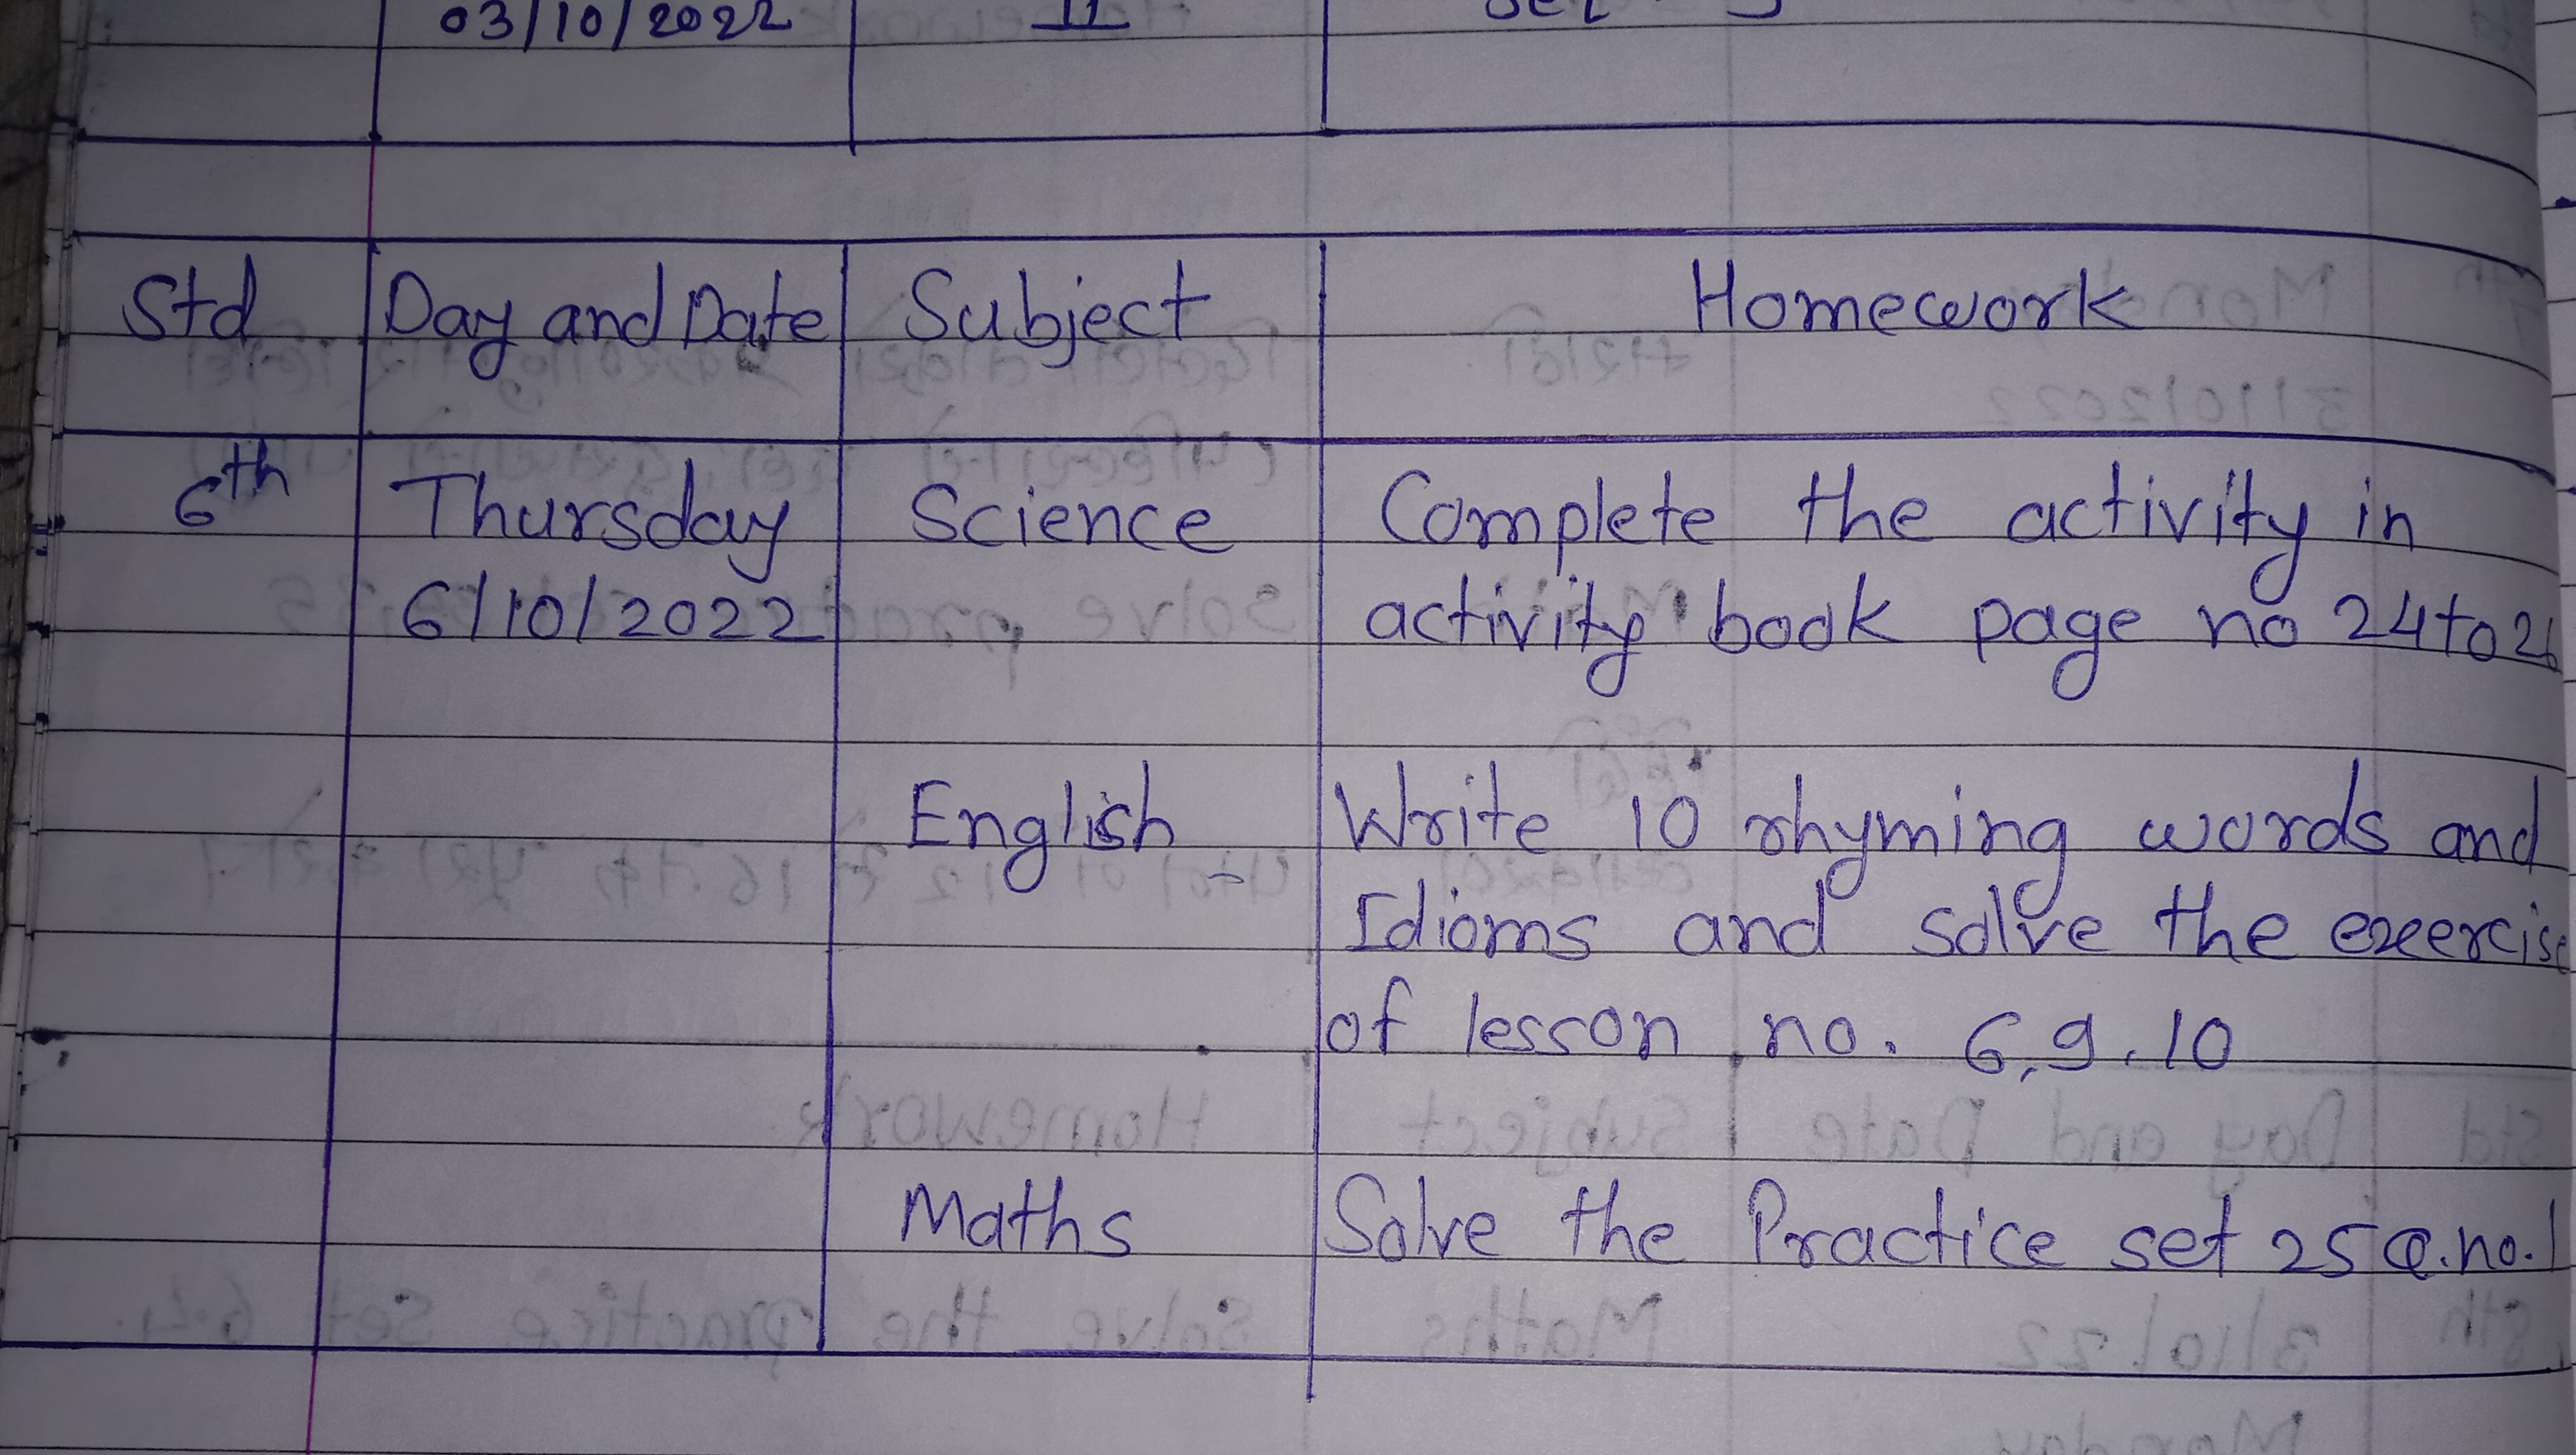 03/10/2022 II
Std Day and Date Subject Homework
6th Thursday Science Complete the activity in
6/10/2022 activity book page no 24 to 26
English Write 10 rhyming words and
Idioms and solve the exercise
of lesson no. 6, 9, 10
Maths Solve the Practice set 25 Q.no.1